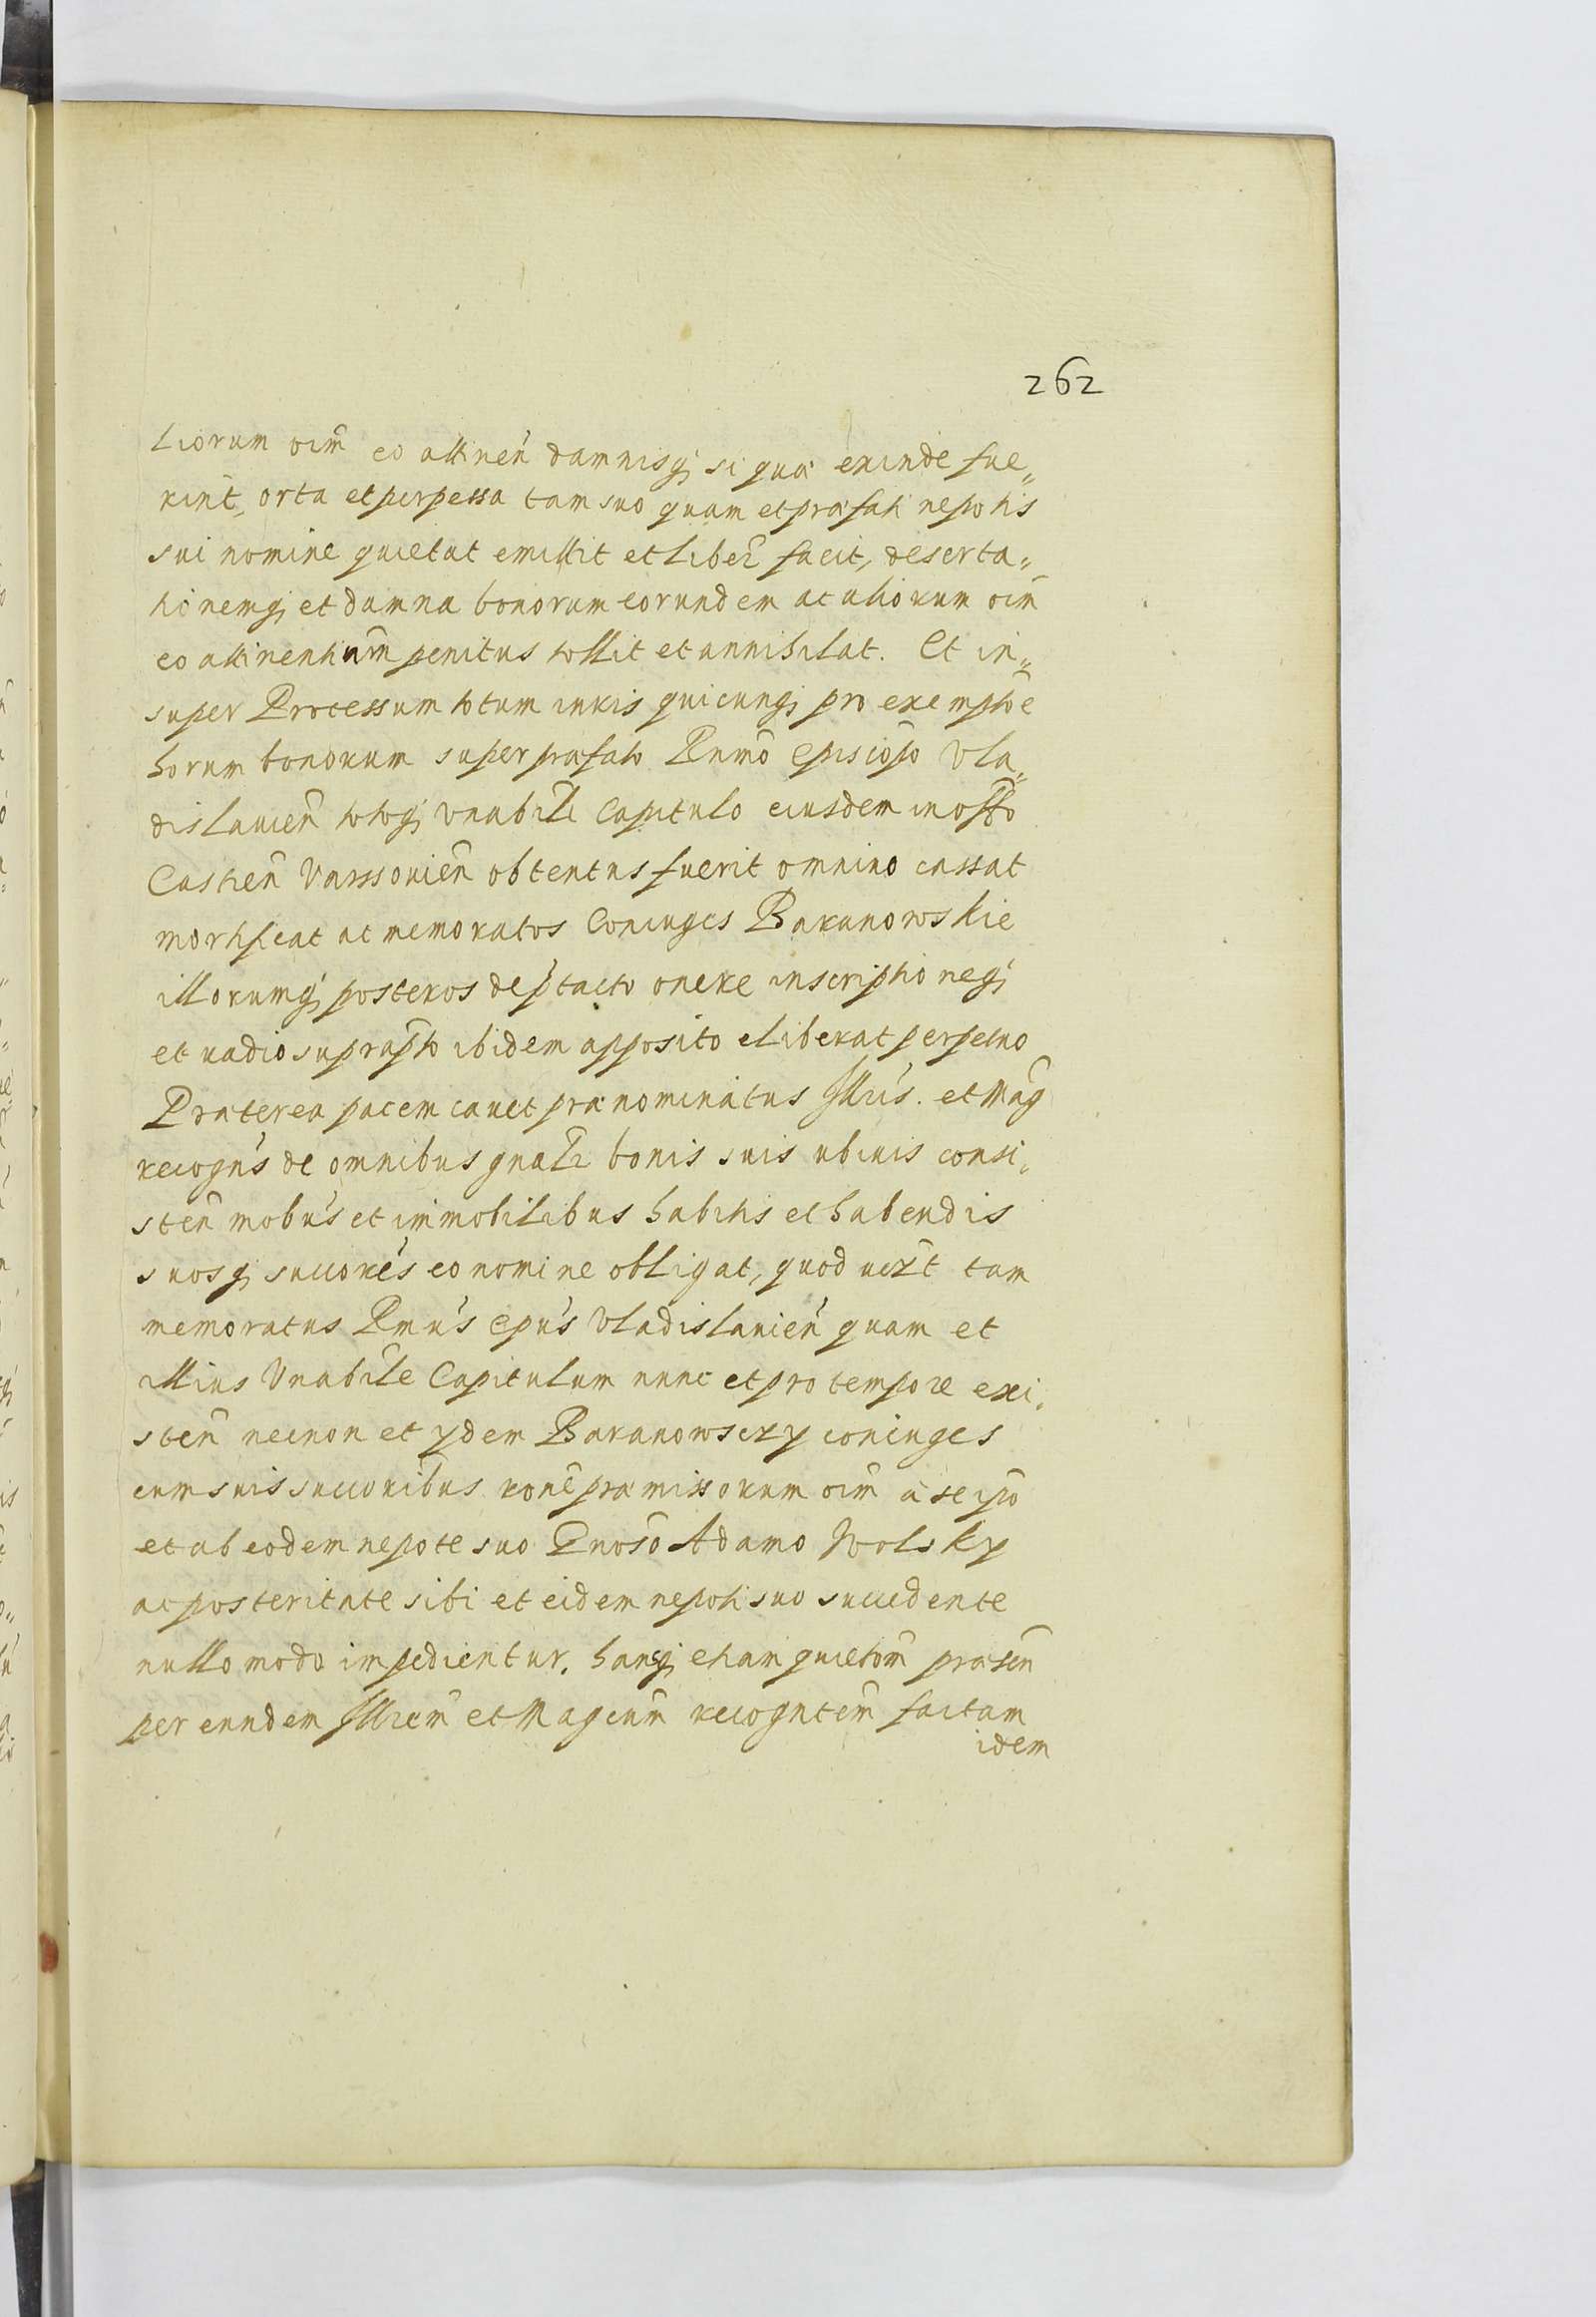 262
liorum oim̃ eo attineñ damnisq; si quæ exinde fue„
rint, orta et perpessa tam suo quam et præfati nepotis
sui nomine quietat emittit et liber̃ facit, deserta„
tionemq; et damna bonorum eorundem ac aliorum oim̃
eo attinentium penitus tollit et annihilat. Et in„
super Processum totum iuris quicunq; pro exemptõe
horum bonorum super præfato Rmõ Episcopo Vla„
dislauieñ totoq; Vnabili Capitulo eiusdem in offõ
Castreñ Varssouieñ obtentus fuerit omnino cassat
mortificat ac memoratos Coniuges Baranowskie
illorumq; posteros de p̃tacto onere inscriptioneq;
et vadio suprap̃to ibidem apposito eliberat perpetuo
Præterea pacem cauet prænominatus Illris. et Mag̃
recogñs de omnibus gnalr̃ bonis suis ubiuis consi„
steñ mobũs et immobilibus habitis et habendis
suosq; succor̃es eo nomine obligat, quod uerũt tam
memoratus Rmũs Epũs Vladislauieñ quam et
illius Vnabile Capitulum nunc et pro tempore exi„
steñ necnon et ydem Baranowsczy coniuges
cum suis succoribus rone præmissorum oim̃ a se ipso
et ab eodem nepote suo Gnoso Adamo Wolsky
ac posteritate sibi et eidem nepoti suo succedente
nullo modo impedientur. hancq; etiam quietom̃ præseñ
per eundem Illrem̃ et Magcum̃ recogntem̃ factam
idem